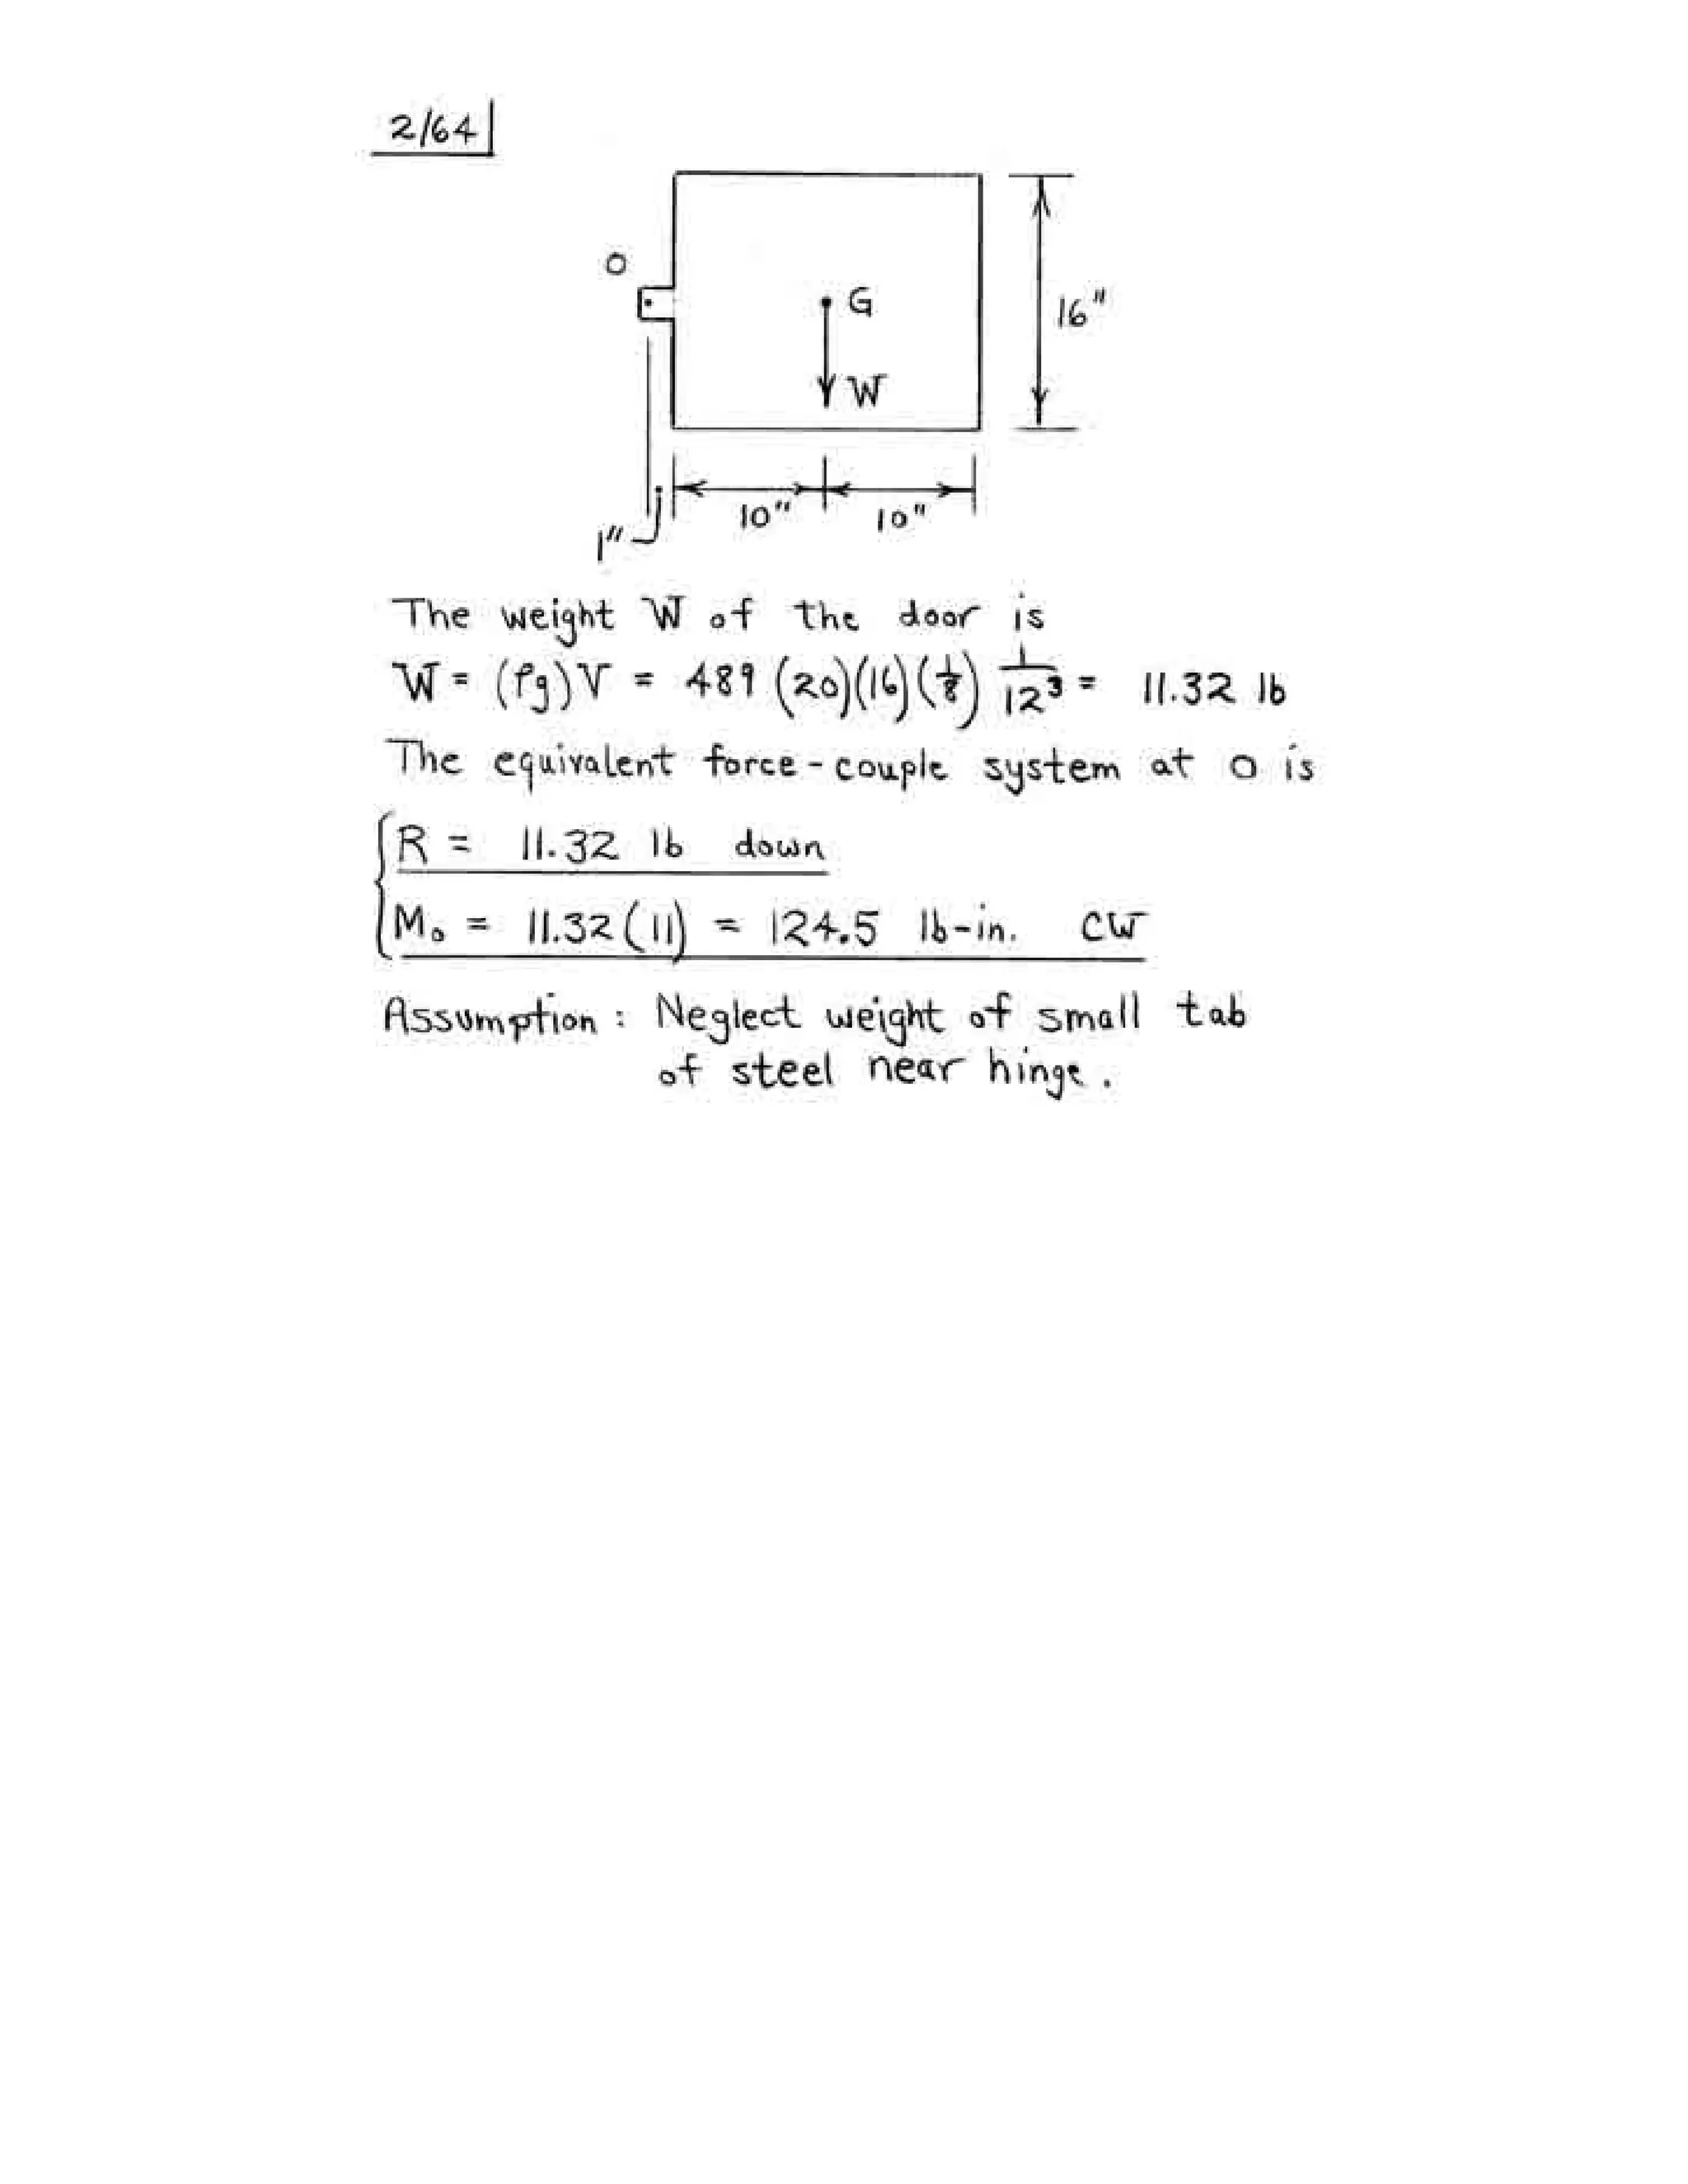 2/64
O
G
16"
W
10"
10"
1"
The weight W of the door is
W = (ρg)V = 489 (20)(16)(1/8) 1/12³ = 11.32 lb
The equivalent force-couple system at O is
R = 11.32 lb down
M₀ = 11.32(11) = 124.5 lb-in. CW
Assumption: Neglect weight of small tab
of steel near hinge.